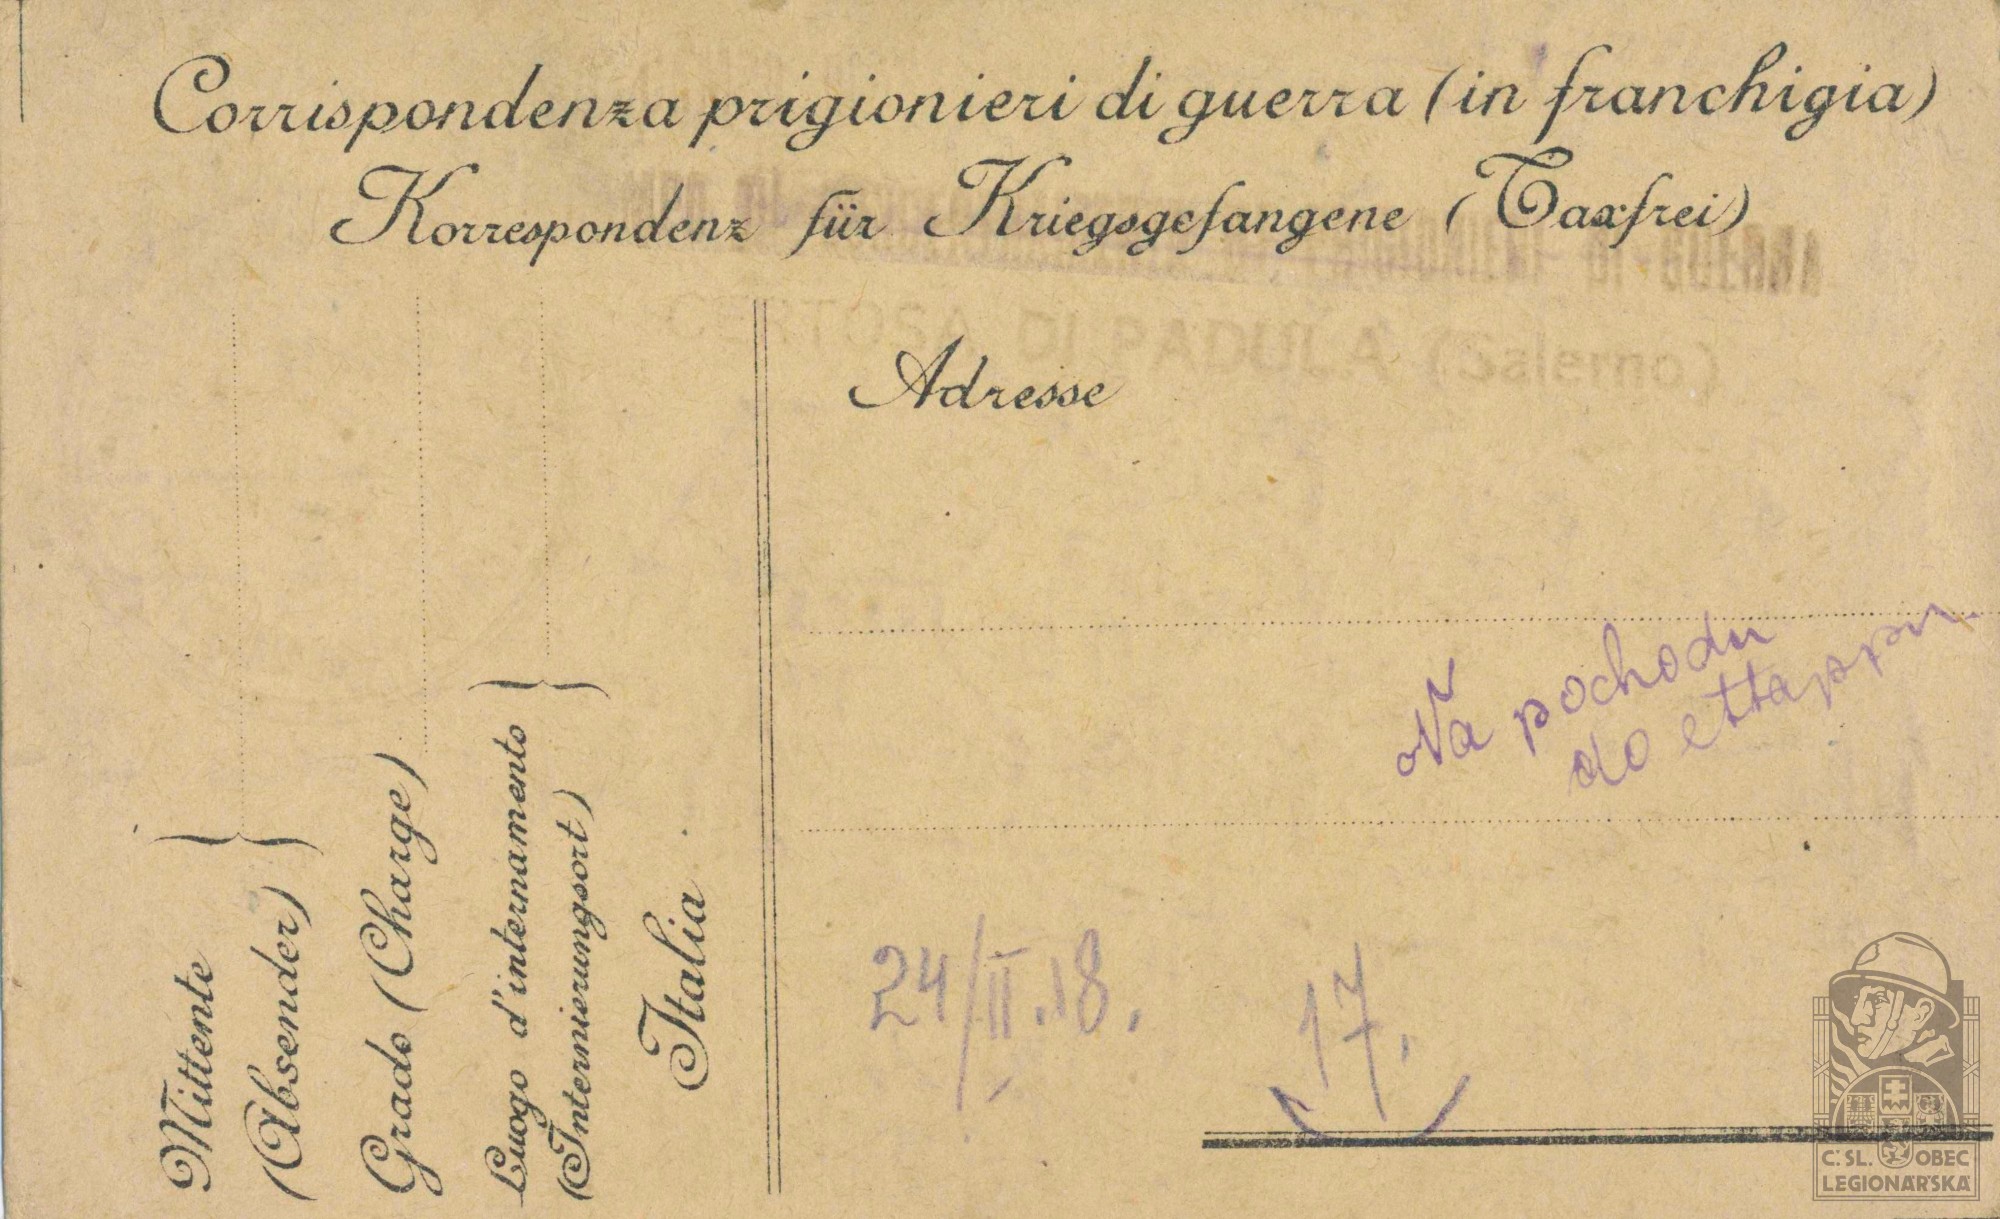 Corrispondenza prigionieri di guerra (in franchigia)
Korrespondenz für Kriegsgefangene (Taxfrei)
CERTOSA DI PADULA (Salerno)
Adresse
Na pochodu
do ettappu.
24/II.18.
17.
Mittente
(Absender)
Grado (Charge)
Luogo d'internamento
(Internierungsort)
Italia
Č.SL. OBEC
LEGIONÁŘSKÁ